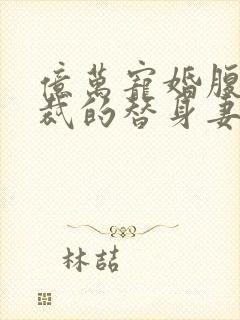 億萬寵婚腹
裁的替身妻
林喆